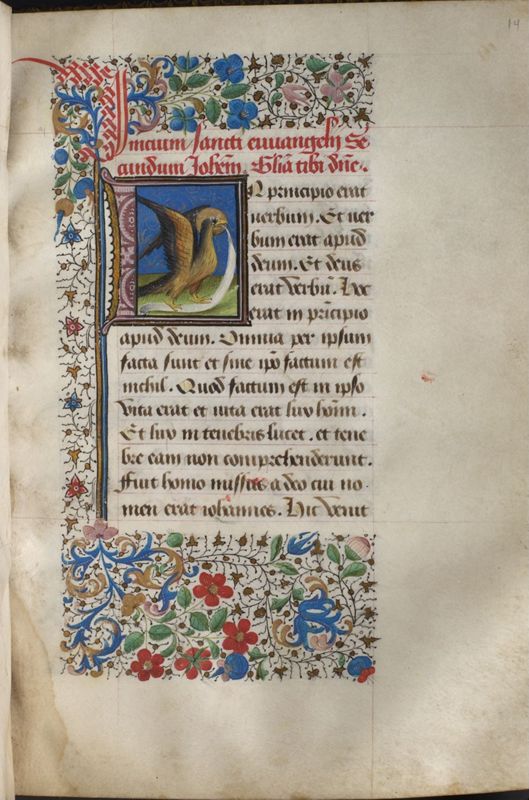 14
Inicium sancti euuangelij Se
cundum Johēm. Gl̄ia tibi dn̄e.
IN principio erat
uerbum. Et uer
bum erat apud
deum. Et deus
erat verbū. Hoc
erat in principio
apud deum. Omnia per ipsum
facta sunt et sine ip̄o factum est
nichil. Quod factum est in ipso
vita erat et uita erat lux hōim.
Et lux in tenebris lucet. et tene
bre eam non comprehenderunt.
Fuit homo missus a deo cui no
men erat iohannes. Hic venit